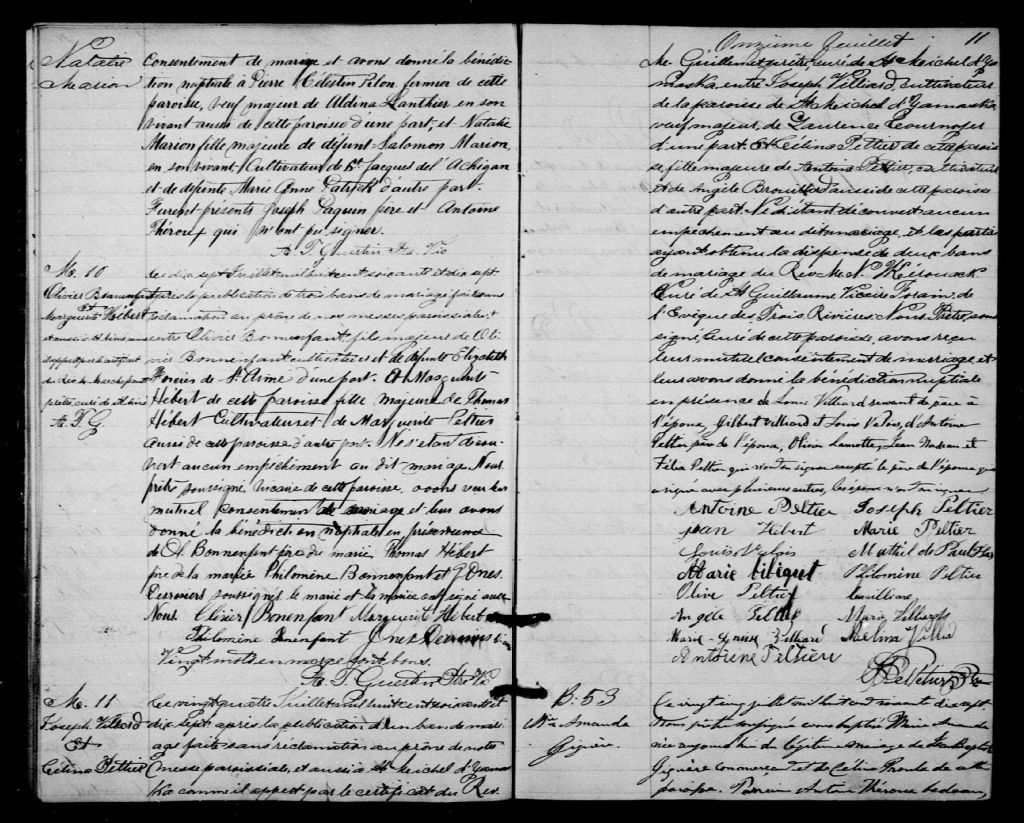 Natalie
Marion
Consentement de mariage et avons donné la bénédic
tion nuptiale à Pierre Célestin Pilon fermier de cette
paroisse, veuf majeur de Aldina Lanthier en son
vivant aussi de cette paroisse d'une part, et Natalie
Marion fille majeure de défunt Salomon Marion,
en son vivant, Cultivateur de St Jacques del'Achigan
et de défunte Marie Anne d'autre part.
Furent présents Joseph Paquin père et Antoine
Theroux qui n'ont pu signer.
A. T. Guertin Ptre Vic
M. 10
Olivier Bonnenfant
Et
Marguerite Hébert
A. T. G
Le dix sept Juillet mil huit cent soixante et dix sept
après la publication de trois bans de mariage faite sans
réclamation au prône de nos messes paroissiales, et
entre Olivier Bonnenfant, fils majeur de Oli
vier Bonnenfant cultivateur et de défunte Elizabeth
de St Aimé d'une part. Et Marguerite
Hébert de cette paroisse fille majeure de Thomas
Hébert Cultivateur et de Marguerite Peltier
aussi de cette paroisse d'autre part. Ne s'étant décou-
vert aucun empêchement au dit mariage. Nous
prêtre soussigné, Vicaire de cette paroisse, avons reçu leur
mutuel consentement de mariage et leur avons
donné la bénédiction nuptiale en présence
de Ol. Bonnenfant père du marié, Thomas Hébert
père de la mariée Philomène Bonnenfant et Ynes
Desrosiers soussignés le marié et la mariée ont signé avec
Nous Olivier Bonenfant Marguerite Hebert
Philomène Bonenfant Ynes
Vingt mots en marge sont bons.
A. T. Guertin Ptre V.
M. 11
Joseph Villiard
Et
Célina Peltier
Le vingt quatre Juillet mil huit cent soixante et
dix sept après la publication d'un ban de mari
age faite sans réclamation au prône de notre
messe paroissiale, et aussi à St Michel d'Yamas
ka comme il appert par le certificat du Rév.
Onzième feuillet 11
M. Guillemette prêtre, curé de St Michel d'Ya
maska, entre Joseph Villiard, cultivateur
de la paroisse de St Michel d'Yamaska,
veuf majeur de Laurence Cournoyer
d'une part. Et Célina Peltier de cette parois
se fille majeure de Antoine Peltier, cultivateur
et de Angèle Brouillard aussi de cette paroisse
d'autre part. Ne s'étant découvert aucun
empêchement au dit mariage, et les parties
ayant obtenu la dispense de deux bans
de mariage du Rév. M. N. Kérouack
Curé de St Guillaume, Vicaire Forain, de
l'Evêque des Trois Rivières. Nous Prêtre, sous
signé, Curé de cette paroisse, avons reçu
leur mutuel consentement de mariage et
leur avons donné la bénédiction nuptiale
en présence de Louis Villiard servant de père à
l'époux, Gilbert Villiard et Louis Valois, d'Antoine
Peltier père de l'épouse, Olivier Lamotte, Jean et
Félix Peltier qui n'ont su signer excepté le père de l'épouse qui
a signé avec plusieurs autres,
Antoine Peltier Joseph Peltier
Jean Hebert Marie Peltier
Louis Valois
Marie Philomène Peltier
Olive Peltier
Angèle Peltier Marie Villiard
Marie-Louise Villiard
Antoine Peltier
B. 53
Mie Amanda
Giguère.
Ce vingt cinq juillet mil huit cent soixante dix sept
Nous prêtre soussigné avons baptisé Marie Amanda
née aujourd'hui du légitime mariage de Jean Baptiste
Giguère Commerçant et de Célina Proulx de cette
paroisse. Parrain Antoine Theroux bedeau,